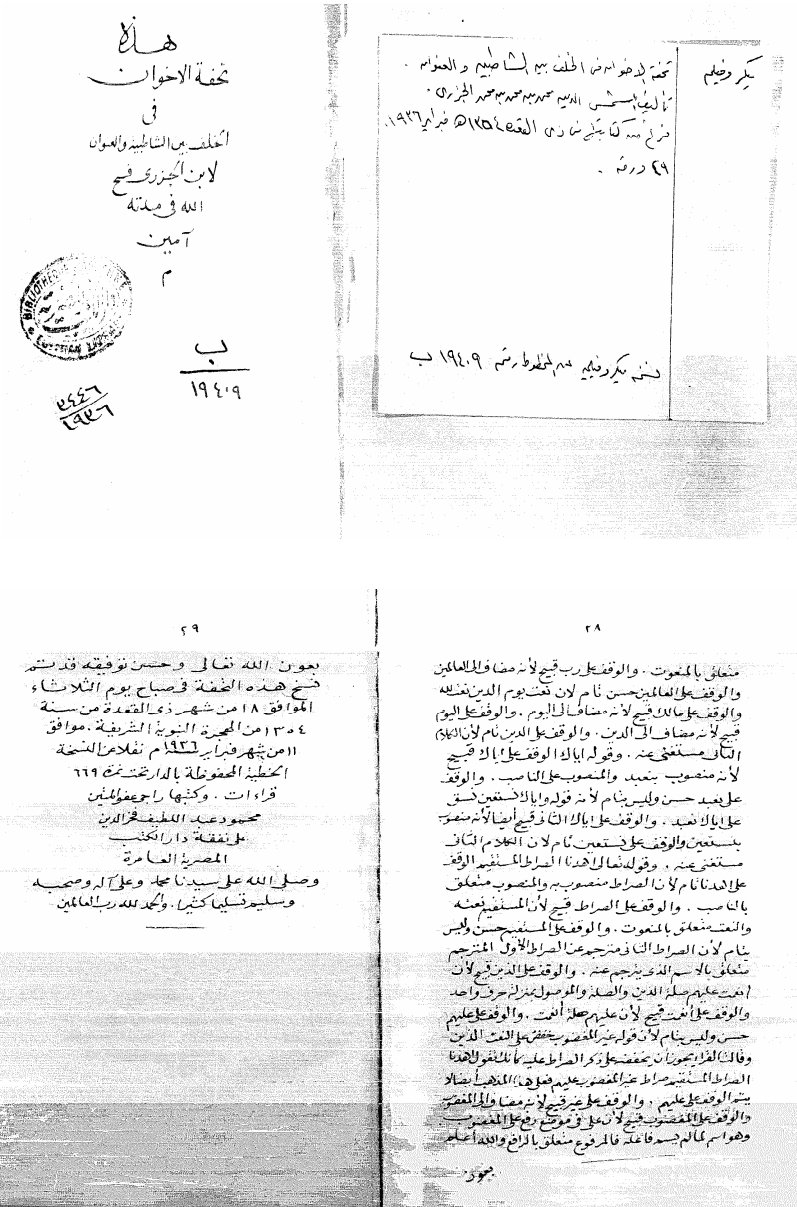 ميكروفيلم
تحفة الإخوان فى الخلف بين الشاطبية والعنوان .
تأليف شمس الدين محمد بن محمد بن محمد الجزرى .
فرغ من كتابته فى ذى القعدة ١٣٥٤ هـ فبراير ١٩٣٦.
٢٩ ورقة .
نسخة ميكروفيلمية عن المخطوط رقم ١٩٤٠٩ ب
هذه
تحفة الاخوان
فى
الخلف بين الشاطبية والعوان
لابن الجزرى فسح
الله فى مدته
آمين
م
ب
١٩٤٠٩
٣٤٤٦
١٩٣٦
٢٨
متعلق بالمنعوت . والوقف على رب قبيح لأنه مضاف الى العالمين
والوقف على العالمين حسن تام لان نعت يوم الدين نعت لله
والوقف على مالك قبيح لأنه مضاف الى اليوم . والوقف على اليوم
قبيح لأنه مضاف الى الدين . والوقف على الدين تام لأن الكلام
الثانى مستغنى عنه . وقوله اياك الوقف على اياك قبيح
لأنه منصوب بنعبد والمنصوب على الناصب . والوقف
على نعبد حسن وليس بتام لأنه قوله واياك نستعين نسق
على اياك نعبد . والوقف على اياك الثانى قبيح أيضا لأنه منصوب
بنستعين والوقف على نستعين تام لان الكلام الثانى
مستغنى عنه . وقوله تعالى اهدنا الصراط المستقيم الوقف
على اهدنا تام لأن الصراط منصوب به والمنصوب متعلق
بالناصب . والوقف على الصراط قبيح لأن المستقيم نعته
والنعت متعلق بالمنعوت . والوقف على المستقيم حسن وليس
بتام لأن الصراط الثانى مترجم عن الصراط الأول المترجم
متعلق بالاسم الذى يترجم عنه . والوقف على الذين قبيح لأن
أنعمت عليهم صلة الذين والصلة والموصول بمنزلة حرف واحد
والوقف على أنعمت قبيح لأن عليهم صلة أنعمت . والوقف على عليهم
حسن وليس بتام لأن قوله غير المغضوب خفض على النعت الذين
وقال الفرا يجوز أن يخفضه على ذكر الصراط عليه كأنك تقول اهدنا
الصراط المستقيم صراط غير المغضوب عليهم فعلى هذا المذهب أيضا لا
يتم الوقف على عليهم . والوقف على غير قبيح لأنه مضاف الى المغضوب
والوقف على المغضوب قبيح لأن على فى موضع رفع على المغضوب
وهو اسم لما لم يسم فاعله فالمرفوع متعلق بالرافع والله أعلم
بعون
٢٩
بعون الله تعالى وحسن توفيقه قد تم
نسخ هذه التحفة فى صباح يوم الثلاثاء
الموافق ١٨ من شهر ذى القعدة من سنة
١٣٥٤ من الهجرة النبوية الشريفة . موافق
١١ من شهر فبراير سنة ١٩٣٦ م نقلا عن النسخة
الخطية المحفوظة بالدار تحت نمرة ٦٦٩
قراءات . وكتبها راجى عفو المنين
محمود عبد اللطيف فخر الدين
على نفقة دار الكتب
المصرية العامرة
وصلى الله على سيدنا محمد وعلى آله وصحبه
وسلم تسليما كثيرا . والحمد لله رب العالمين